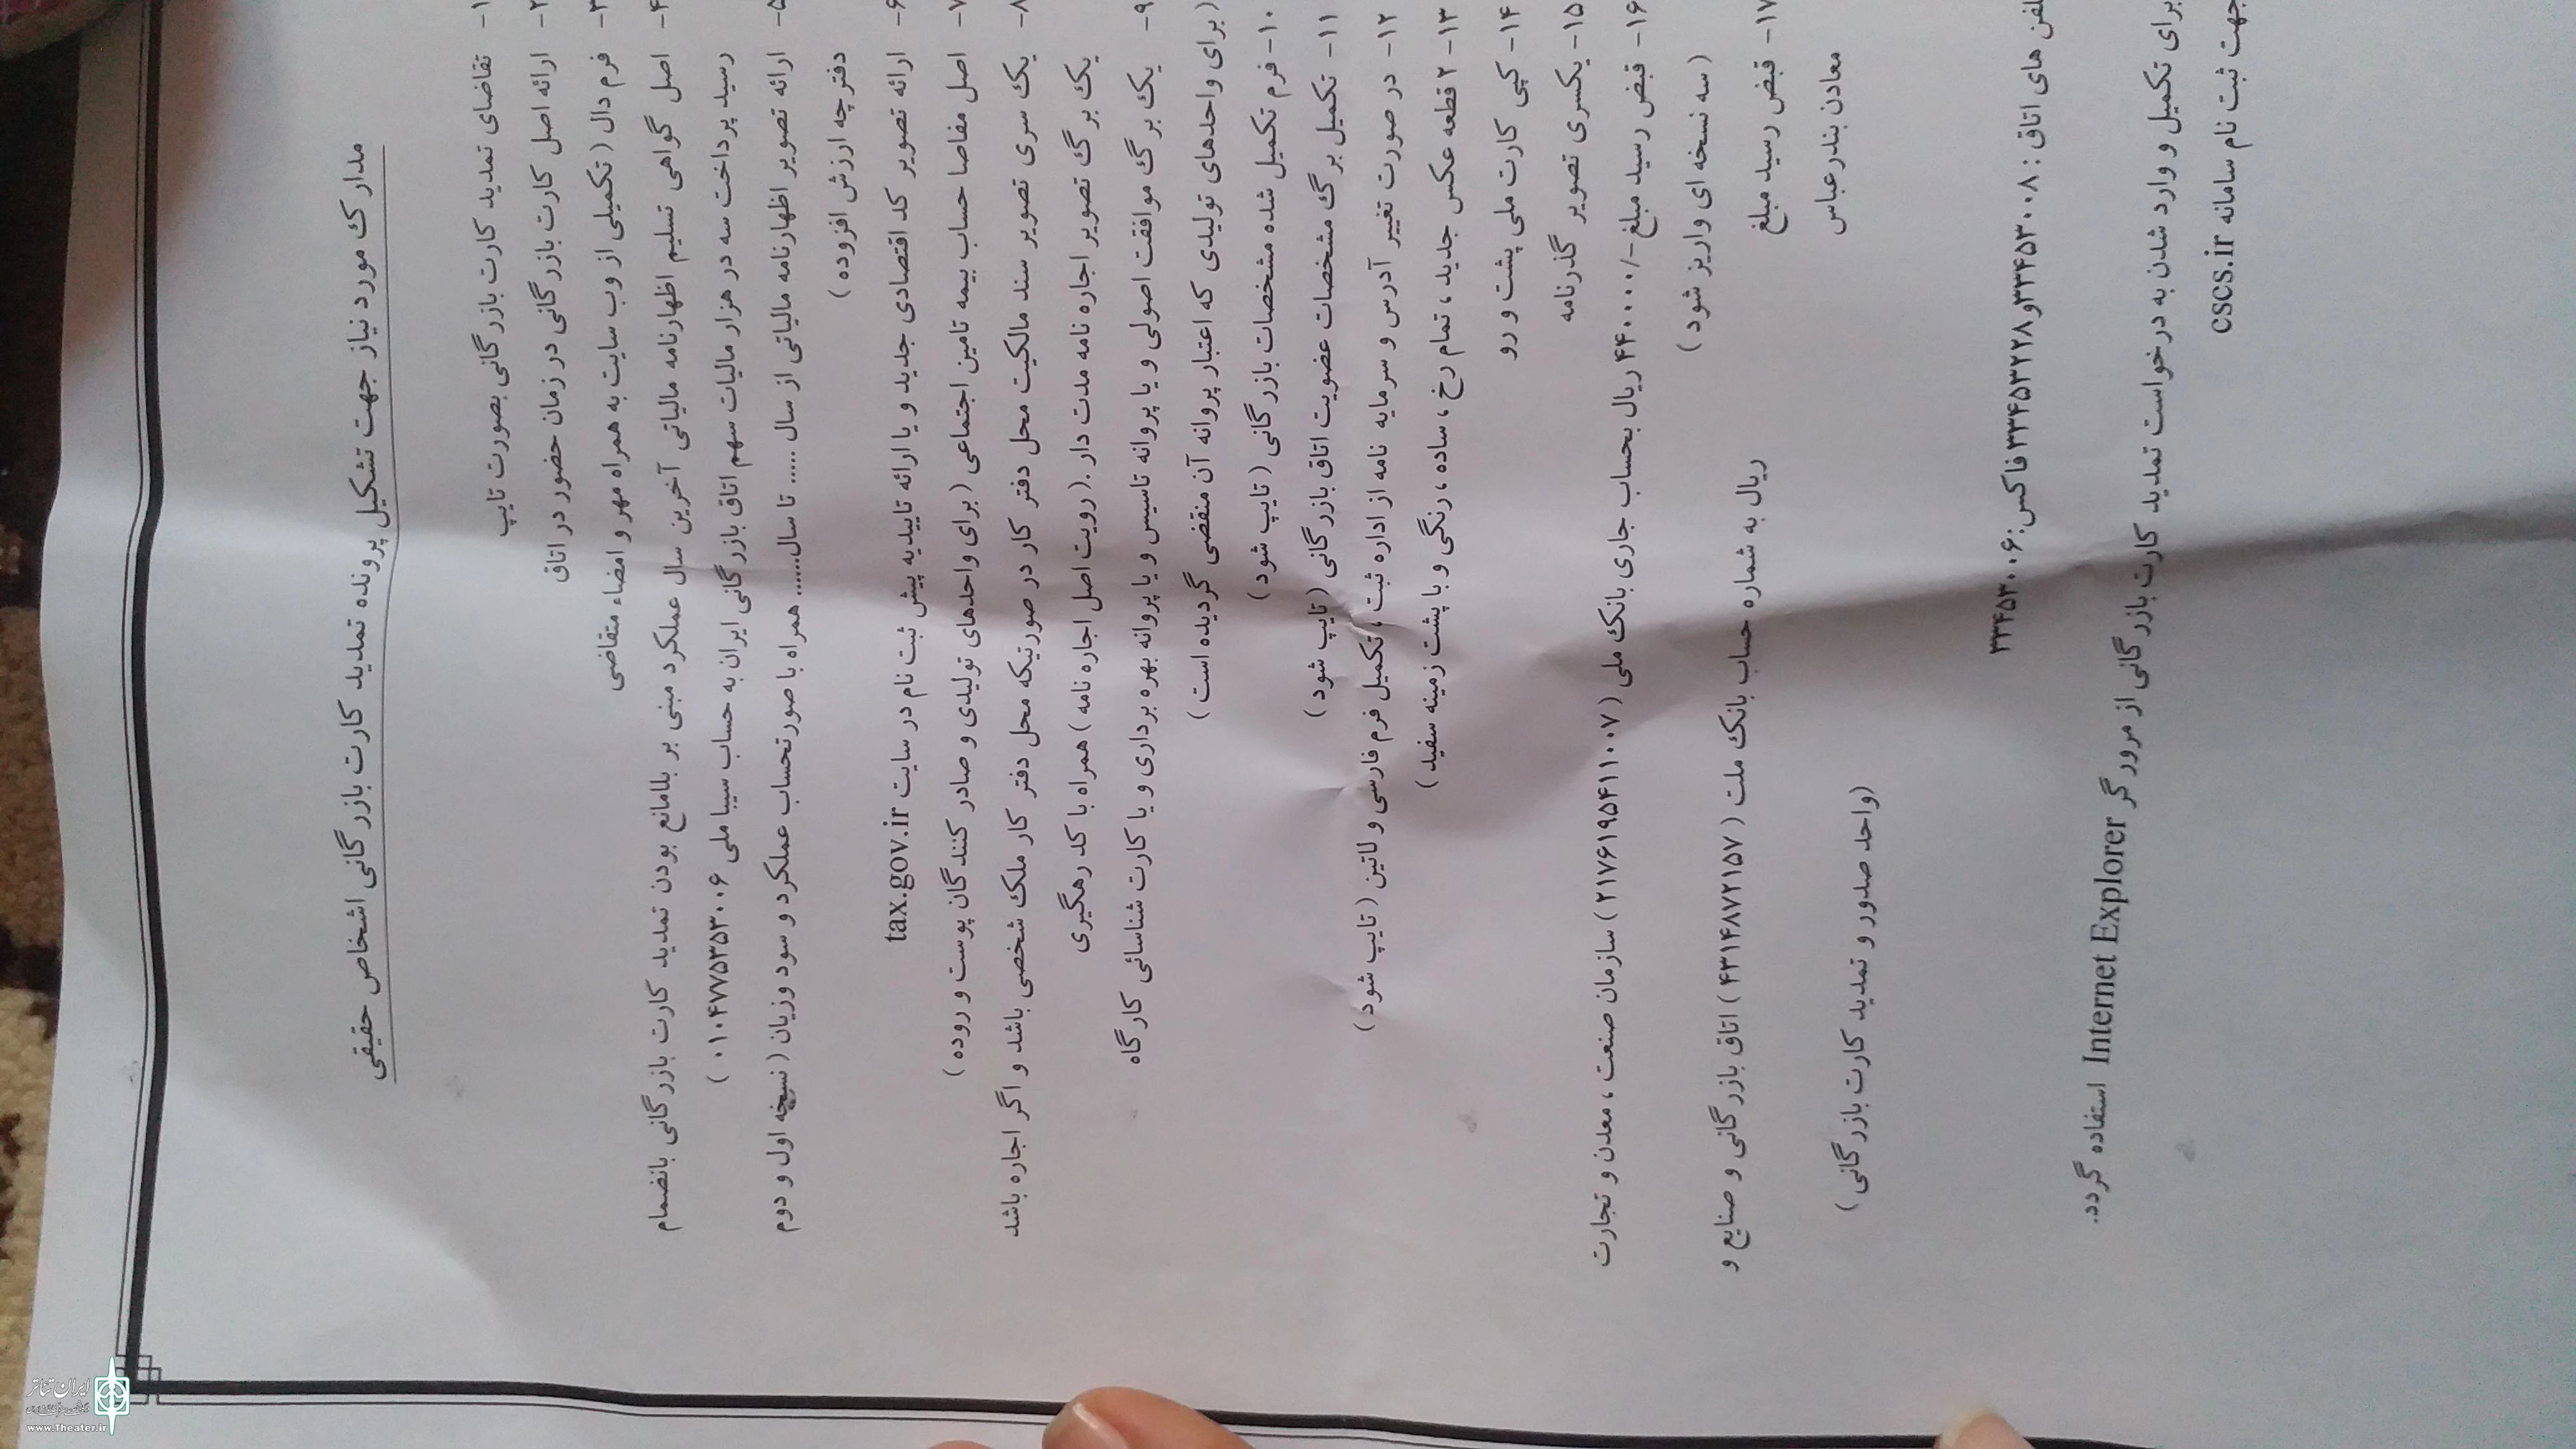 مدارک مورد نیاز جهت تشکیل پرونده تمدید کارت بازرگانی اشخاص حقیقی
۱- تقاضای تمدید کارت بازرگانی بصورت تایپ
۲- ارائه اصل کارت بازرگانی در زمان حضور در اتاق
۳- فرم دال ( تکمیلی از وب سایت به همراه مهر و امضاء متقاضی
۴- اصل گواهی تسلیم اظهارنامه مالیاتی آخرین سال عملکرد مبنی بر بلامانع بودن تمدید کارت بازرگانی بانضمام
رسید پرداخت سه در هزار مالیات سهم اتاق بازرگانی ایران به حساب سیبا ملی ۰۱۰۴۷۷۵۳۵۳۰۰۶ )
۵- ارائه تصویر اظهارنامه مالیاتی از سال ..... تا سال....... همراه با صورتحساب عملکرد و سود وزیان ( نسخه اول و دوم
دفترچه ارزش افزوده )
۶- ارائه تصویر کد اقتصادی جدید و یا ارائه تاییدیه پیش ثبت نام در سایت tax.gov.ir
۷- اصل مفاصا حساب بیمه تامین اجتماعی ( برای واحدهای تولیدی و صادر کنندگان پوست و روده )
۸- یک سری تصویر سند مالکیت محل دفتر کار در صورتیکه محل دفتر کار ملک شخصی باشد و اگر اجاره باشد
یک برگ تصویر اجاره نامه مدت دار .( رویت اصل اجاره نامه ) همراه با کد رهگیری
۹- یک برگ موافقت اصولی و یا پروانه تاسیس و یا پروانه بهره برداری و یا کارت شناسائی کارگاه
( برای واحدهای تولیدی که اعتبار پروانه آن منقضی گردیده است )
۱۰- فرم تکمیل شده مشخصات بازرگانی ( تایپ شود )
۱۱- تکمیل برگ مشخصات عضویت اتاق بازرگانی ( تایپ شود )
۱۲- در صورت تغییر آدرس و سرمایه نامه از اداره ثبت ، تکمیل فرم فارسی و لاتین ( تایپ شود )
۱۳- ۲ قطعه عکس جدید ، تمام رخ ، ساده ، رنگی و با پشت زمینه سفید )
۱۴- کپی کارت ملی پشت و رو
۱۵- یکسری تصویر گذرنامه
۱۶- قبض رسید مبلغ -/۴۴۰۰۰۰ ریال بحساب جاری بانک ملی ( ۲۱۷۶۱۹۵۴۱۱۰۰۷ ) سازمان صنعت ، معدن و تجارت
( سه نسخه ای واریز شود )
۱۷- قبض رسید مبلغ ریال به شماره حساب بانک ملت ( ۴۳۱۴۸۷۲۱۵۷ ) اتاق بازرگانی و صنایع و
معادن بندرعباس
(واحد صدور و تمدید کارت بازرگانی )
های اتاق : ۳۳۴۵۳۰۰۸و۳۳۴۵۳۲۲۸فاکس:۳۳۴۵۳۰۰۶
برای تکمیل و وارد شدن به درخواست تمدید کارت بازرگانی از مرورگر Internet Explorer استفاده گردد.
جهت ثبت نام سامانه cscs.ir
ایران تئاتر
www.Theater.ir